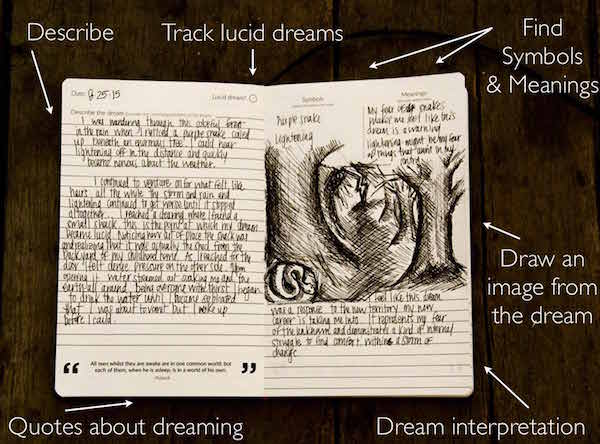 Describe
Track lucid dreams
Find
Symbols
& Meanings
Date: 9·25·15
Lucid dream?
Describe the dream
I was wandering through this colorful forest
in the rain when I noticed a purple snake coiled
up beneath an enormous tree. I could hear
lightening off in the distance and quickly
became nervous about the weather.
I continued to venture on for what felt like
hours, all the while the storm and rain and
lightening continued to get worse until it stopped
alltogether. I reached a clearing where I found a
small shack. This is the point at which my dream
became lucid. Noticing how out of place the shack was
and realizing that it was actually the shed from the
backyard of my childhood home. As I reached for the
door I felt dense pressure on the other side. Upon
opening it water streamed out soaking me and the
earth all around. Being overcome with thirst I began
to drink the water until I became so
that I was about to vomit but I woke up
before I could.
“ All men whilst they are awake are in one common world: but
each of them, when he is asleep, is in a world of his own. ”
Plutarch
Symbols
Purple snake
Lightening
Meanings
My fear of snakes
make me feel like this
dream is a warning
lightening might be my fear
of things that aren't in my
control
I feel like this dream
was a response to the new territory my new
career is taking me into. It represents my fear
of the unknown and demonstrates a kind of internal
struggle to find comfort within a storm of
change
Draw an
image from
the dream
Quotes about dreaming
Dream interpretation